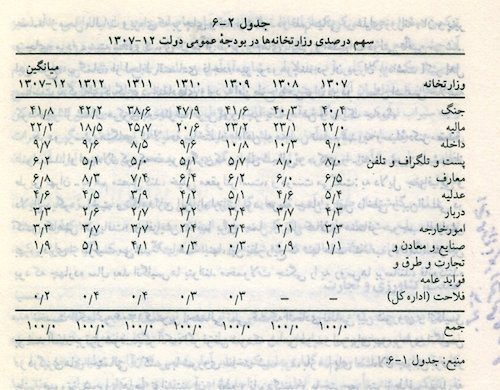 جدول ۲-۶
سهم درصدی وزارتخانه‌ها در بودجهٔ عمومی دولت ۱۲-۱۳۰۷
میانگین
وزارتخانه ۱۳۰۷ ۱۳۰۸ ۱۳۰۹ ۱۳۱۰ ۱۳۱۱ ۱۳۱۲ ۱۲-۱۳۰۷
جنگ ۴۰٫۴ ۴۰٫۳ ۴۱٫۶ ۴۷٫۹ ۳۸٫۶ ۴۲٫۲ ۴۱٫۸
مالیه ۲۲٫۰ ۲۳٫۱ ۲۳٫۲ ۲۰٫۶ ۲۵٫۷ ۱۸٫۵ ۲۲٫۲
داخله ۹٫۰ ۱۰٫۳ ۱۰٫۸ ۹٫۶ ۸٫۶ ۹٫۵ ۹٫۷
پست و تلگراف و تلفن ۸٫۰ ۸٫۰ ۵٫۷ ۵٫۰ ۵٫۱ ۵٫۱ ۶٫۲
معارف ۶٫۵ ۶٫۰ ۶٫۲ ۶٫۴ ۷٫۴ ۸٫۳ ۶٫۸
عدلیه ۵٫۴ ۴٫۶ ۵٫۱ ۴٫۶ ۳٫۹ ۴٫۲ ۴٫۶
دربار ۴٫۳ ۳٫۷ ۳٫۴ ۳٫۲ ۲٫۷ ۲٫۶ ۳٫۳
امورخارجه ۳٫۳ ۳٫۱ ۳٫۴ ۲٫۲ ۳٫۷ ۴٫۱ ۳٫۳
صنایع و معادن و ۱٫۱ ۰٫۹ ۰٫۳ ۰٫۳ ۴٫۱ ۵٫۱ ۱٫۹
تجارت و طرق و
فواید عامه
فلاحت (اداره کل) – – ۰٫۳ ۰٫۳ ۰٫۴ ۰٫۴ ۰٫۲
جمع ۱۰۰٫۰ ۱۰۰٫۰ ۱۰۰٫۰ ۱۰۰٫۰ ۱۰۰٫۰ ۱۰۰٫۰ ۱۰۰٫۰
منبع: جدول ۱-۶